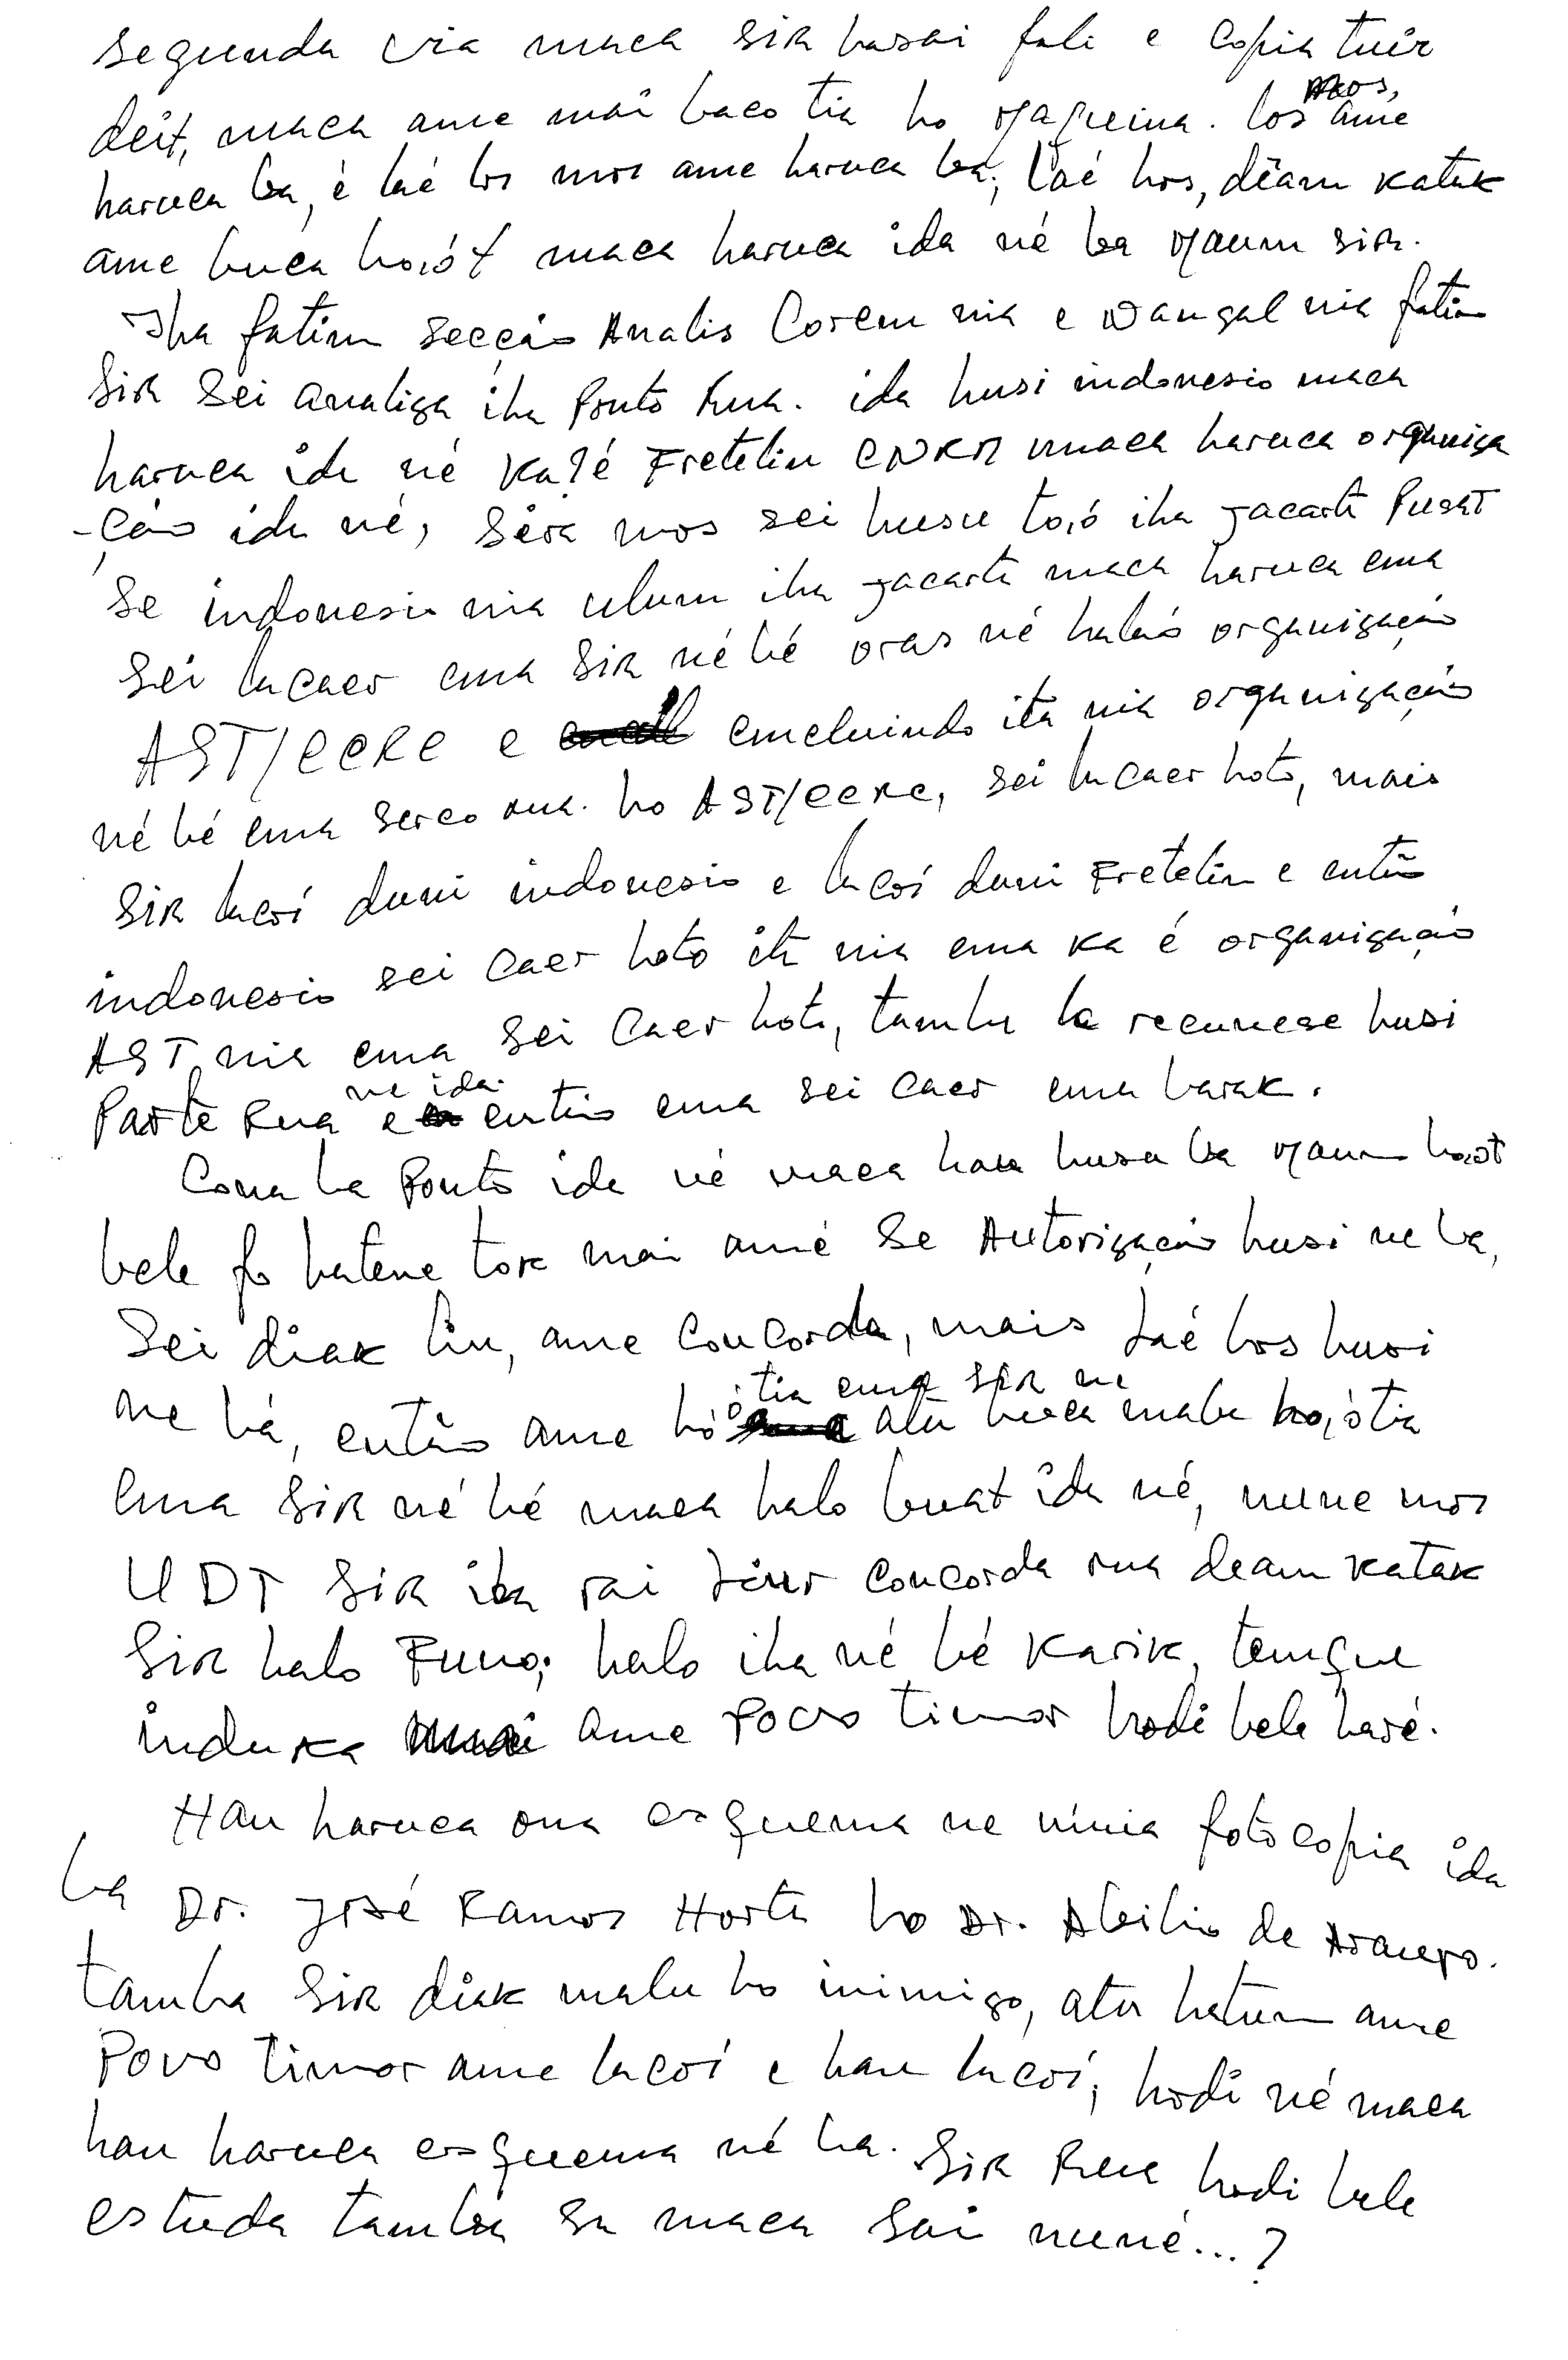 segunda via maca sira hasai fali e copia tuir
deit, maca ame mai baco tia ho maquina. los mos, ame
haruca ba, é laé los mos ame haruca ba; laé los, déam katak
ame buca ho,ót maca haruca ida né ba Maum sira.
Iha fatim secção Analis Corem nia e Dangal nia fatim
Sira Sei analiza iha Ponto Rua. ida husi indonesio maca
haruca ida né ka?é Fretelin CNRM maca haruca organiza
-ção ida né, Sira mos sei husu to,ó iha Jacarta Pusat
Se indonesio nia ulum iha Jacarta maca haruca ema
Sei lacaer ema Sira né bé oras né halao organização
AST/CCRE e emcluindo ita nia organização
né bé ema serco ona. ho AST/CCRE, sei lacaer hoto, mais
Sira lacoí duni indonesio e lacoí duni Fretelin e então
indonesio sei caer hoto ita nia ema ka é organização
AST nia ema sei caer hoto, tamba la recunese husi
Parte Rua ne ida. e então ema sei caer ema barak.
Cona ba Ponto ida né maca hau husu ba Maum ho,ot
bele fo hatene tok mai amé Se Autorização husi ne ba,
Sei diak liu, ame concorda, mais Laé los husi
ne bá, então ame hó,ó tia ema sira ne atu buca malu ho,ó tia
Ema Sira né bé maca halo buat ida né, nune mos
UDT Sira iha rai Liur concorda ona deam katak
Sira halo Funo; halo iha né bé karik, temque
induka ame Povo timor hodi bele haré.
Hau haruca ona esquema ne ninia fotocopia ida
ba Dr. José Ramos Horta ho Dr. Abilio de Araujo.
tamba Sira diak malu ho inimigo, atu hatun ame
Povo timor ame lacoí e hau lacoí; hodi né maca
hau haruca esquema né ba. Sira Rua hodi bele
estuda tamba sa maca sai nuné...?